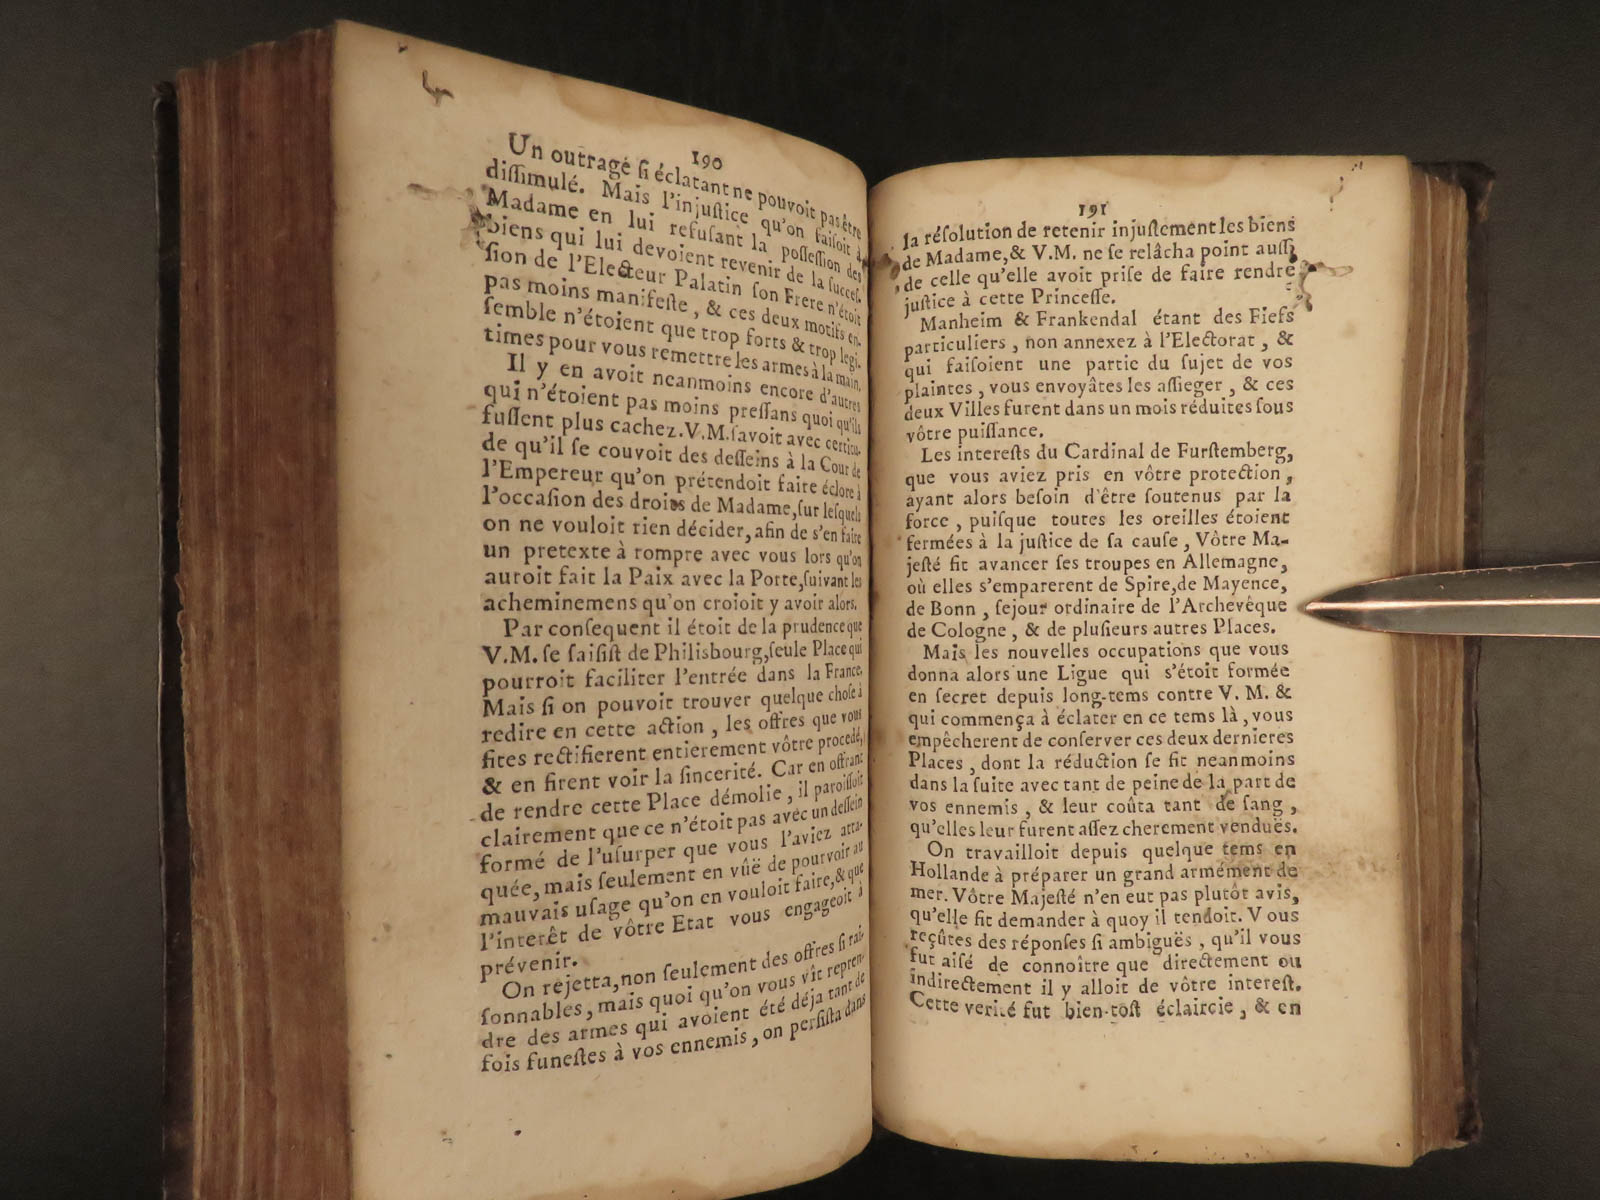 190
Un outrage ſi éclatant ne pouvoit pas être
diſſimulé. Mais l'injuſtice qu'on faiſoit à
Madame en lui refuſant la poſſeſſion des
biens qui lui devoient revenir de la ſucceſ-
ſion de l'Electeur Palatin ſon Frere n'étoit
pas moins manifeſte, & ces deux motifs en-
ſemble n'étoient que trop forts & trop legi-
times pour vous remettre les armes à la main.
Il y en avoit neanmoins encore d'autres
qui n'étoient pas moins preſſans quoi qu'ils
fuſſent plus cachez. V.M. ſavoit avec certitu-
de qu'il ſe couvoit des deſſeins à la Cour de
l'Empereur qu'on prétendoit faire éclore à
l'occaſion des droits de Madame, ſur leſquels
on ne vouloit rien décider, afin de s'en faire
un pretexte à rompre avec vous lors qu'on
auroit fait la Paix avec la Porte, ſuivant les
acheminemens qu'on croioit y avoir alors.
Par conſequent il étoit de la prudence que
V.M. ſe ſaiſiſt de Philisbourg, ſeule Place qui
pourroit faciliter l'entrée dans la France.
Mais ſi on pouvoit trouver quelque choſe à
redire en cette action, les offres que vous
fites rectifierent entierement vôtre procedé,
& en firent voir la ſincerité. Car en offrant
de rendre cette Place démolie, il paroiſſoit
clairement que ce n'étoit pas avec un deſſein
formé de l'uſurper que vous l'aviez atta-
quée, mais ſeulement en vûë de pourvoir au
mauvais uſage qu'on en vouloit faire, & que
l'interêt de vôtre Etat vous engageoit à
prévenir.
On rejetta, non ſeulement des offres ſi rai-
ſonnables, mais quoi qu'on vous vît repren-
dre des armes qui avoient été déja tant de
fois funeſtes à vos ennemis, on perſiſta dans
191
la réſolution de retenir injuſtement les biens
de Madame, & V.M. ne ſe relâcha point auſſi
de celle qu'elle avoit priſe de faire rendre
juſtice à cette Princeſſe.
Manheim & Frankendal étant des Fiefs
particuliers, non annexez à l'Electorat, &
qui faiſoient une partie du ſujet de vos
plaintes, vous envoyâtes les aſſieger, & ces
deux Villes furent dans un mois réduites ſous
vôtre puiſſance.
Les intereſts du Cardinal de Furſtemberg,
que vous aviez pris en vôtre protection,
ayant alors beſoin d'être ſoutenus par la
force, puiſque toutes les oreilles étoient
fermées à la juſtice de ſa cauſe, Vôtre Ma-
jeſté fit avancer ſes troupes en Allemagne,
où elles s'emparerent de Spire, de Mayence,
de Bonn, ſejour ordinaire de l'Archevêque
de Cologne, & de pluſieurs autres Places.
Mais les nouvelles occupations que vous
donna alors une Ligue qui s'étoit formée
en ſecret depuis long-tems contre V. M. &
qui commença à éclater en ce tems là, vous
empêcherent de conſerver ces deux dernieres
Places, dont la réduction ſe fit neanmoins
dans la ſuite avec tant de peine de la part de
vos ennemis, & leur coûta tant de ſang,
qu'elles leur furent aſſez cherement venduës.
On travailloit depuis quelque tems en
Hollande à préparer un grand armément de
mer. Vôtre Majeſté n'en eut pas plutôt avis,
qu'elle fit demander à quoy il tendoit. Vous
reçûtes des réponſes ſi ambiguës, qu'il vous
fut aiſé de connoître que directement ou
indirectement il y alloit de vôtre intereſt.
Cette verité fut bien-toſt éclaircie, & en